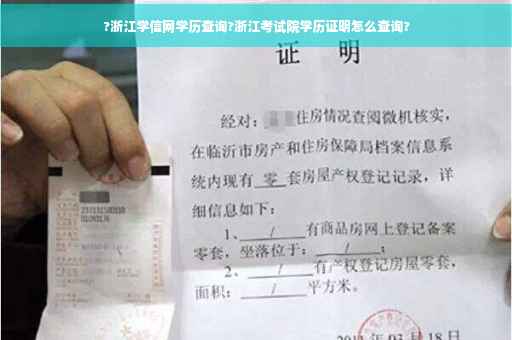 ?浙江学信网学历查询?浙江考试院学历证明怎么查询?
证 明
经对：住房情况查阅微机核实，
在临沂市房产和住房保障局档案信息系
统内现有 零 套房屋产权登记记录，详
细信息如下：
1、 / 有商品房网上登记备案
零套，坐落位于： / ；
2、 / 有产权登记房屋零套，
面积： / 平方米。
03 月 18 日